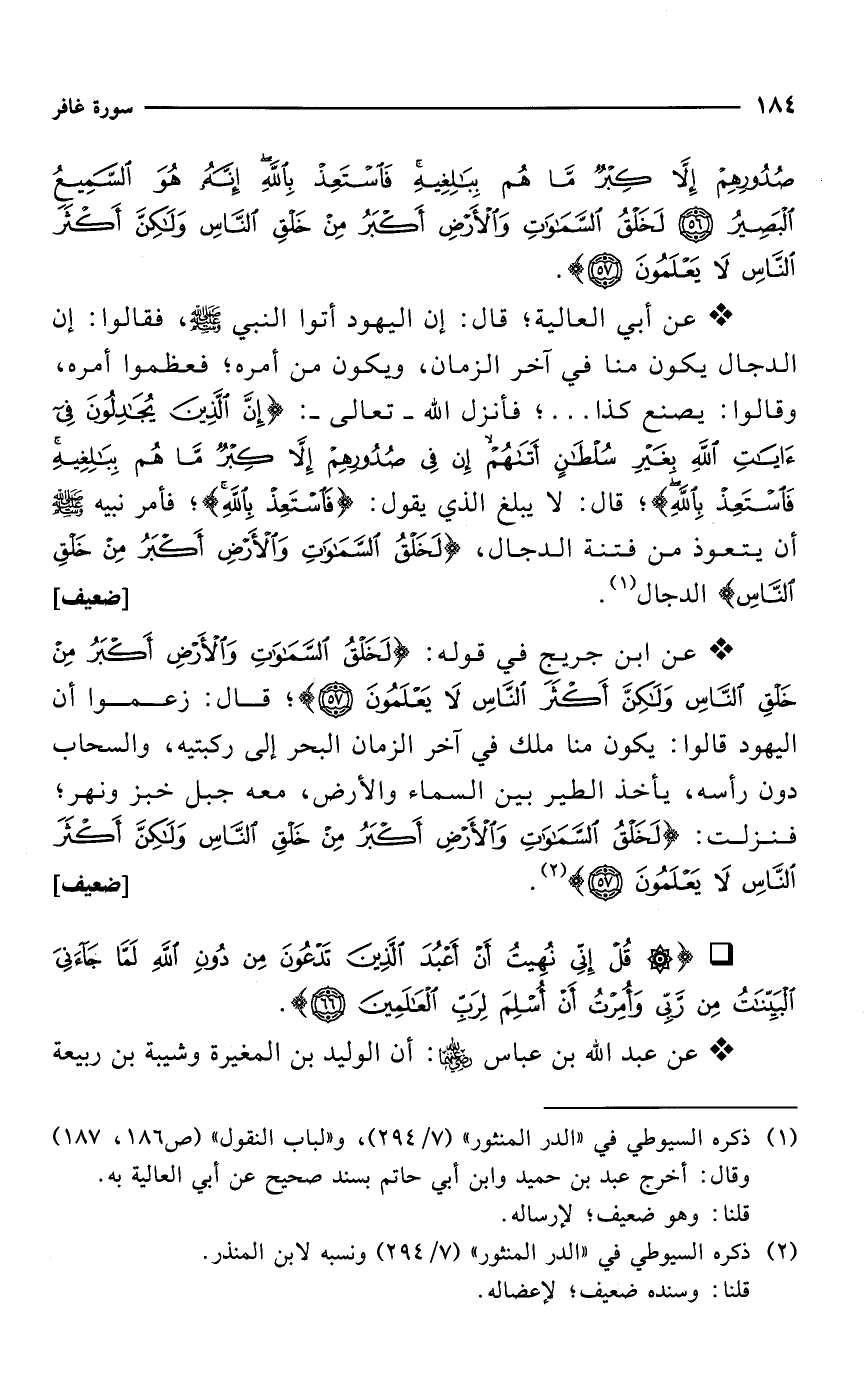 ١٨٤ سورة غافر
صُدُورِهِمْ إِلَّا كِبْرٌ مَّا هُم بِبَٰلِغِيهِۚ فَٱسْتَعِذْ بِٱللَّهِۖ إِنَّهُۥ هُوَ ٱلسَّمِيعُ
ٱلْبَصِيرُ ﴿٥٦﴾ لَخَلْقُ ٱلسَّمَٰوَٰتِ وَٱلْأَرْضِ أَكْبَرُ مِنْ خَلْقِ ٱلنَّاسِ وَلَٰكِنَّ أَكْثَرَ
ٱلنَّاسِ لَا يَعْلَمُونَ ﴿٥٧﴾﴾.
❖ عن أبي العالية؛ قال: إن اليهود أتوا النبي ﷺ، فقالوا: إن
الدجال يكون منا في آخر الزمان، ويكون من أمره؛ فعظموا أمره،
وقالوا: يصنع كذا...؛ فأنزل الله ـ تعالى ـ: ﴿إِنَّ ٱلَّذِينَ يُجَٰدِلُونَ فِىٓ
ءَايَٰتِ ٱللَّهِ بِغَيْرِ سُلْطَٰنٍ أَتَىٰهُمْۙ إِن فِى صُدُورِهِمْ إِلَّا كِبْرٌ مَّا هُم بِبَٰلِغِيهِۚ
فَٱسْتَعِذْ بِٱللَّهِۖ﴾؛ قال: لا يبلغ الذي يقول: ﴿فَٱسْتَعِذْ بِٱللَّهِۚ﴾؛ فأمر نبيه ﷺ
أن يتعوذ من فتنة الدجال، ﴿لَخَلْقُ ٱلسَّمَٰوَٰتِ وَٱلْأَرْضِ أَكْبَرُ مِنْ خَلْقِ
ٱلنَّاسِ﴾ الدجال(١). [ضعيف]
❖ عن ابن جريج في قوله: ﴿لَخَلْقُ ٱلسَّمَٰوَٰتِ وَٱلْأَرْضِ أَكْبَرُ مِنْ
خَلْقِ ٱلنَّاسِ وَلَٰكِنَّ أَكْثَرَ ٱلنَّاسِ لَا يَعْلَمُونَ ﴿٥٧﴾﴾؛ قال: زعموا أن
اليهود قالوا: يكون منا ملك في آخر الزمان البحر إلى ركبتيه، والسحاب
دون رأسه، يأخذ الطير بين السماء والأرض، معه جبل خبز ونهر؛
فنزلت: ﴿لَخَلْقُ ٱلسَّمَٰوَٰتِ وَٱلْأَرْضِ أَكْبَرُ مِنْ خَلْقِ ٱلنَّاسِ وَلَٰكِنَّ أَكْثَرَ
ٱلنَّاسِ لَا يَعْلَمُونَ ﴿٥٧﴾﴾(٢). [ضعيف]
❑ ﴿۞ قُلْ إِنِّى نُهِيتُ أَنْ أَعْبُدَ ٱلَّذِينَ تَدْعُونَ مِن دُونِ ٱللَّهِ لَمَّا جَآءَنِىَ
ٱلْبَيِّنَٰتُ مِن رَّبِّى وَأُمِرْتُ أَنْ أُسْلِمَ لِرَبِّ ٱلْعَٰلَمِينَ ﴿٦٦﴾﴾.
❖ عن عبد الله بن عباس رضي الله عنهما: أن الوليد بن المغيرة وشيبة بن ربيعة
(١) ذكره السيوطي في «الدر المنثور» (٧/ ٢٩٤)، و«لباب النقول» (ص١٨٦، ١٨٧)
وقال: أخرج عبد بن حميد وابن أبي حاتم بسند صحيح عن أبي العالية به.
قلنا: وهو ضعيف؛ لإرساله.
(٢) ذكره السيوطي في «الدر المنثور» (٧/ ٢٩٤) ونسبه لابن المنذر.
قلنا: وسنده ضعيف؛ لإعضاله.